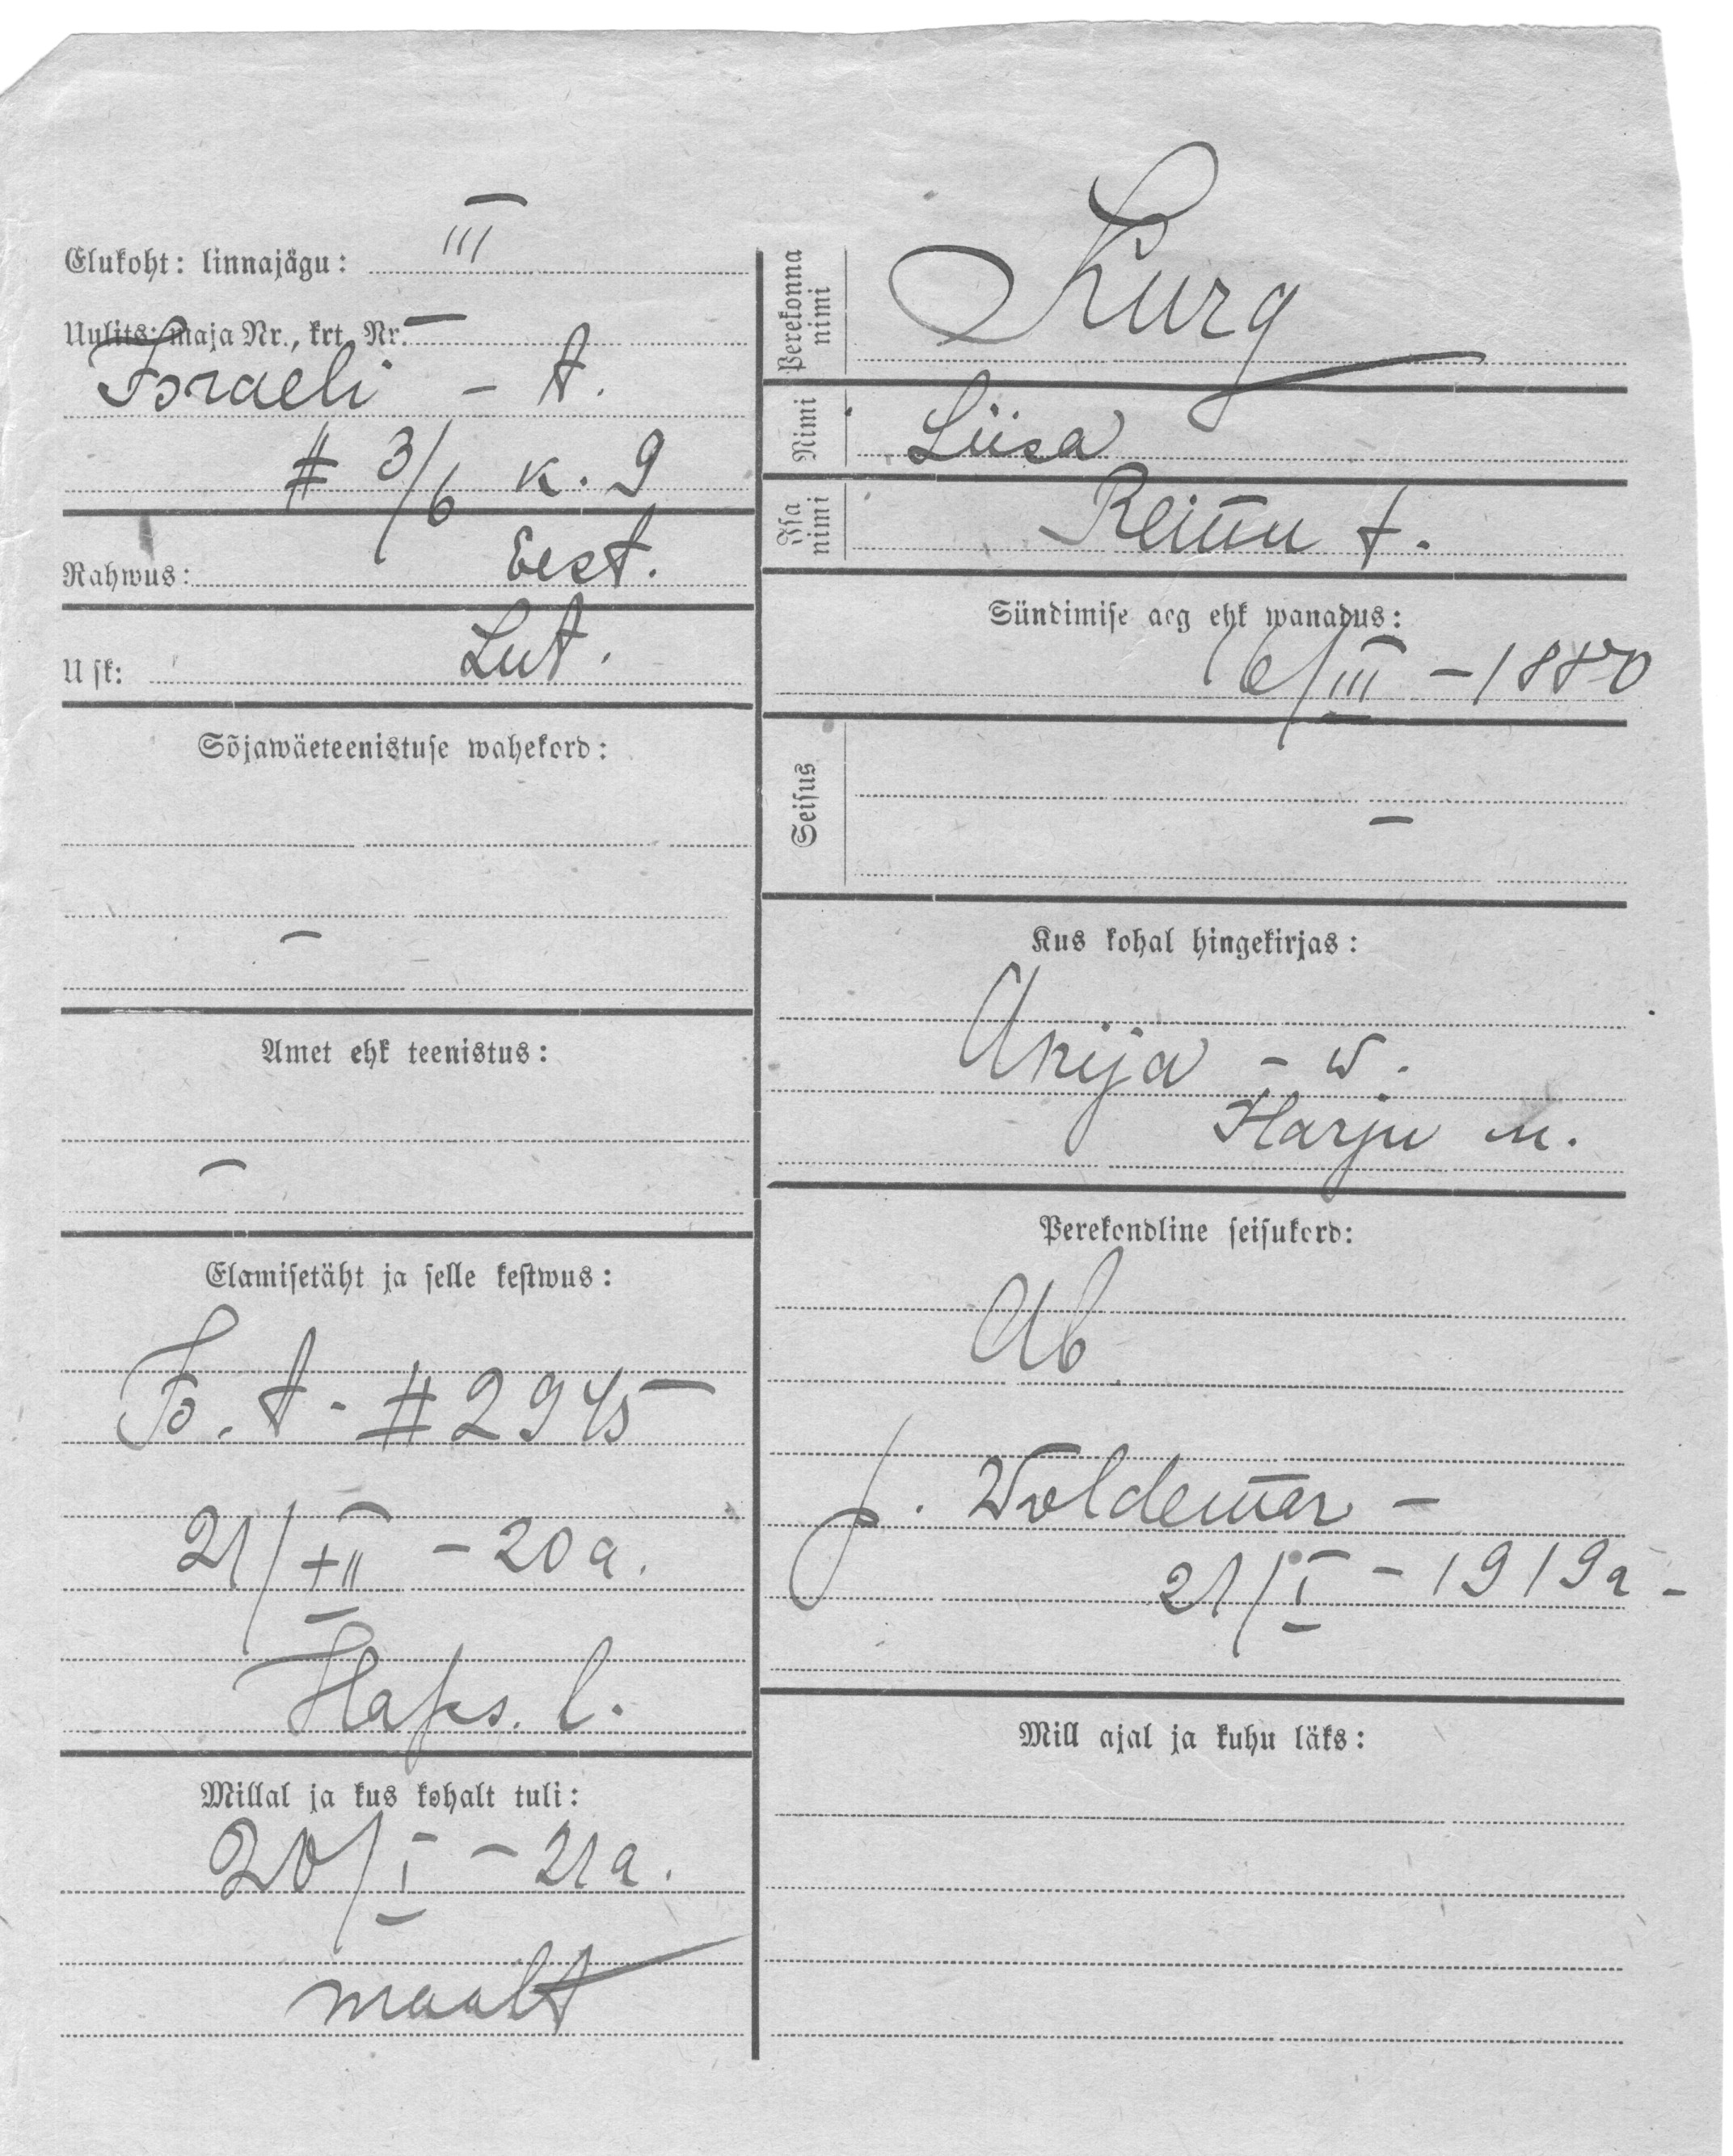 Elukoht: linnajägu: III
Uulits: maja Nr., krt. Nr.
Israeli - t.
# 3/6 k. 9
Rahwus: Eest.
Usk: Lut.
Sõjawäeteenistuse wahekord:
–
Amet ehk teenistus:
–
Elamisetäht ja selle kestwus:
Is. t. # 2945
21/XII - 20 a.
Haps. l.
Millal ja kus kohalt tuli:
20/I - 21 a.
maalt
Perekonna nimi Kurg
Nimi Liisa
Isa nimi Reinu t.
Sündimise aeg ehk wanadus:
6/III - 1880
Seisus
–
Kus kohal hingekirjas:
Anija - w.
Harju m.
Perekondline seisukord:
Ab.
p. Woldemar -
21/I - 1919 a -
Mill ajal ja kuhu läks: